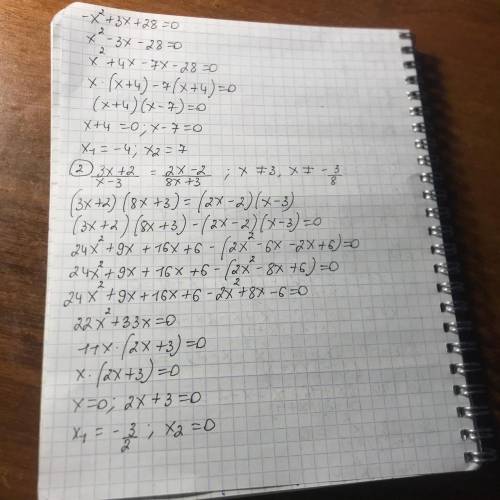 -x²+3x+28=0
x²-3x-28=0
x²+4x-7x-28=0
x·(x+4)-7(x+4)=0
(x+4)(x-7)=0
x+4=0; x-7=0
x₁=-4; x₂=7
② (3x+2)/(x-3) = (2x-2)/(8x+3) ; x≠3, x≠-3/8
(3x+2)(8x+3)=(2x-2)(x-3)
(3x+2)(8x+3)-(2x-2)(x-3)=0
24x²+9x+16x+6-(2x²-6x-2x+6)=0
24x²+9x+16x+6-(2x²-8x+6)=0
24x²+9x+16x+6-2x²+8x-6=0
22x²+33x=0
11x·(2x+3)=0
x·(2x+3)=0
x=0; 2x+3=0
x₁=-3/2; x₂=0